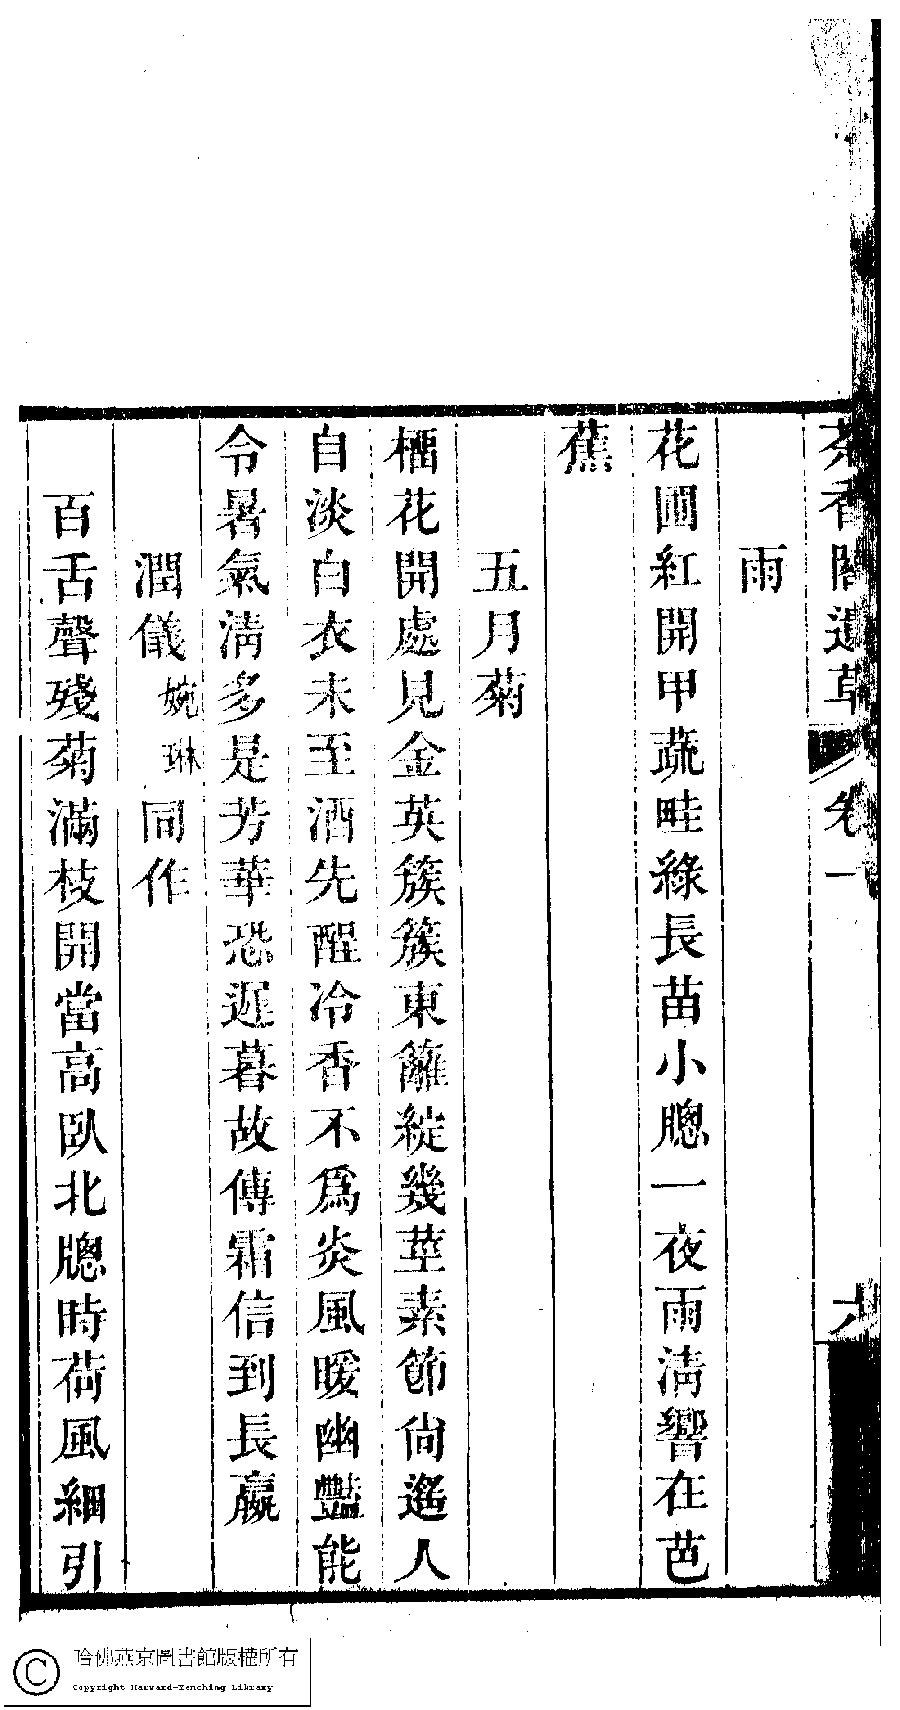 茶香閣遺草 卷一 六
雨
花圃紅開甲蔬畦綠長苗小牕一夜雨淸響在芭
蕉
五月菊
榴花開處見金英簇簇東籬綻幾莖素節尙遙人
自淡白衣未至酒先醒冷香不爲炎風暖幽豔能
令暑氣淸多是芳華恐遲暮故傳霜信到長嬴
潤儀婉琳同作
百舌聲殘菊滿枝開當高臥北牕時荷風細引
哈佛燕京圖書館版權所有
Copyright Harvard-Yenching Library